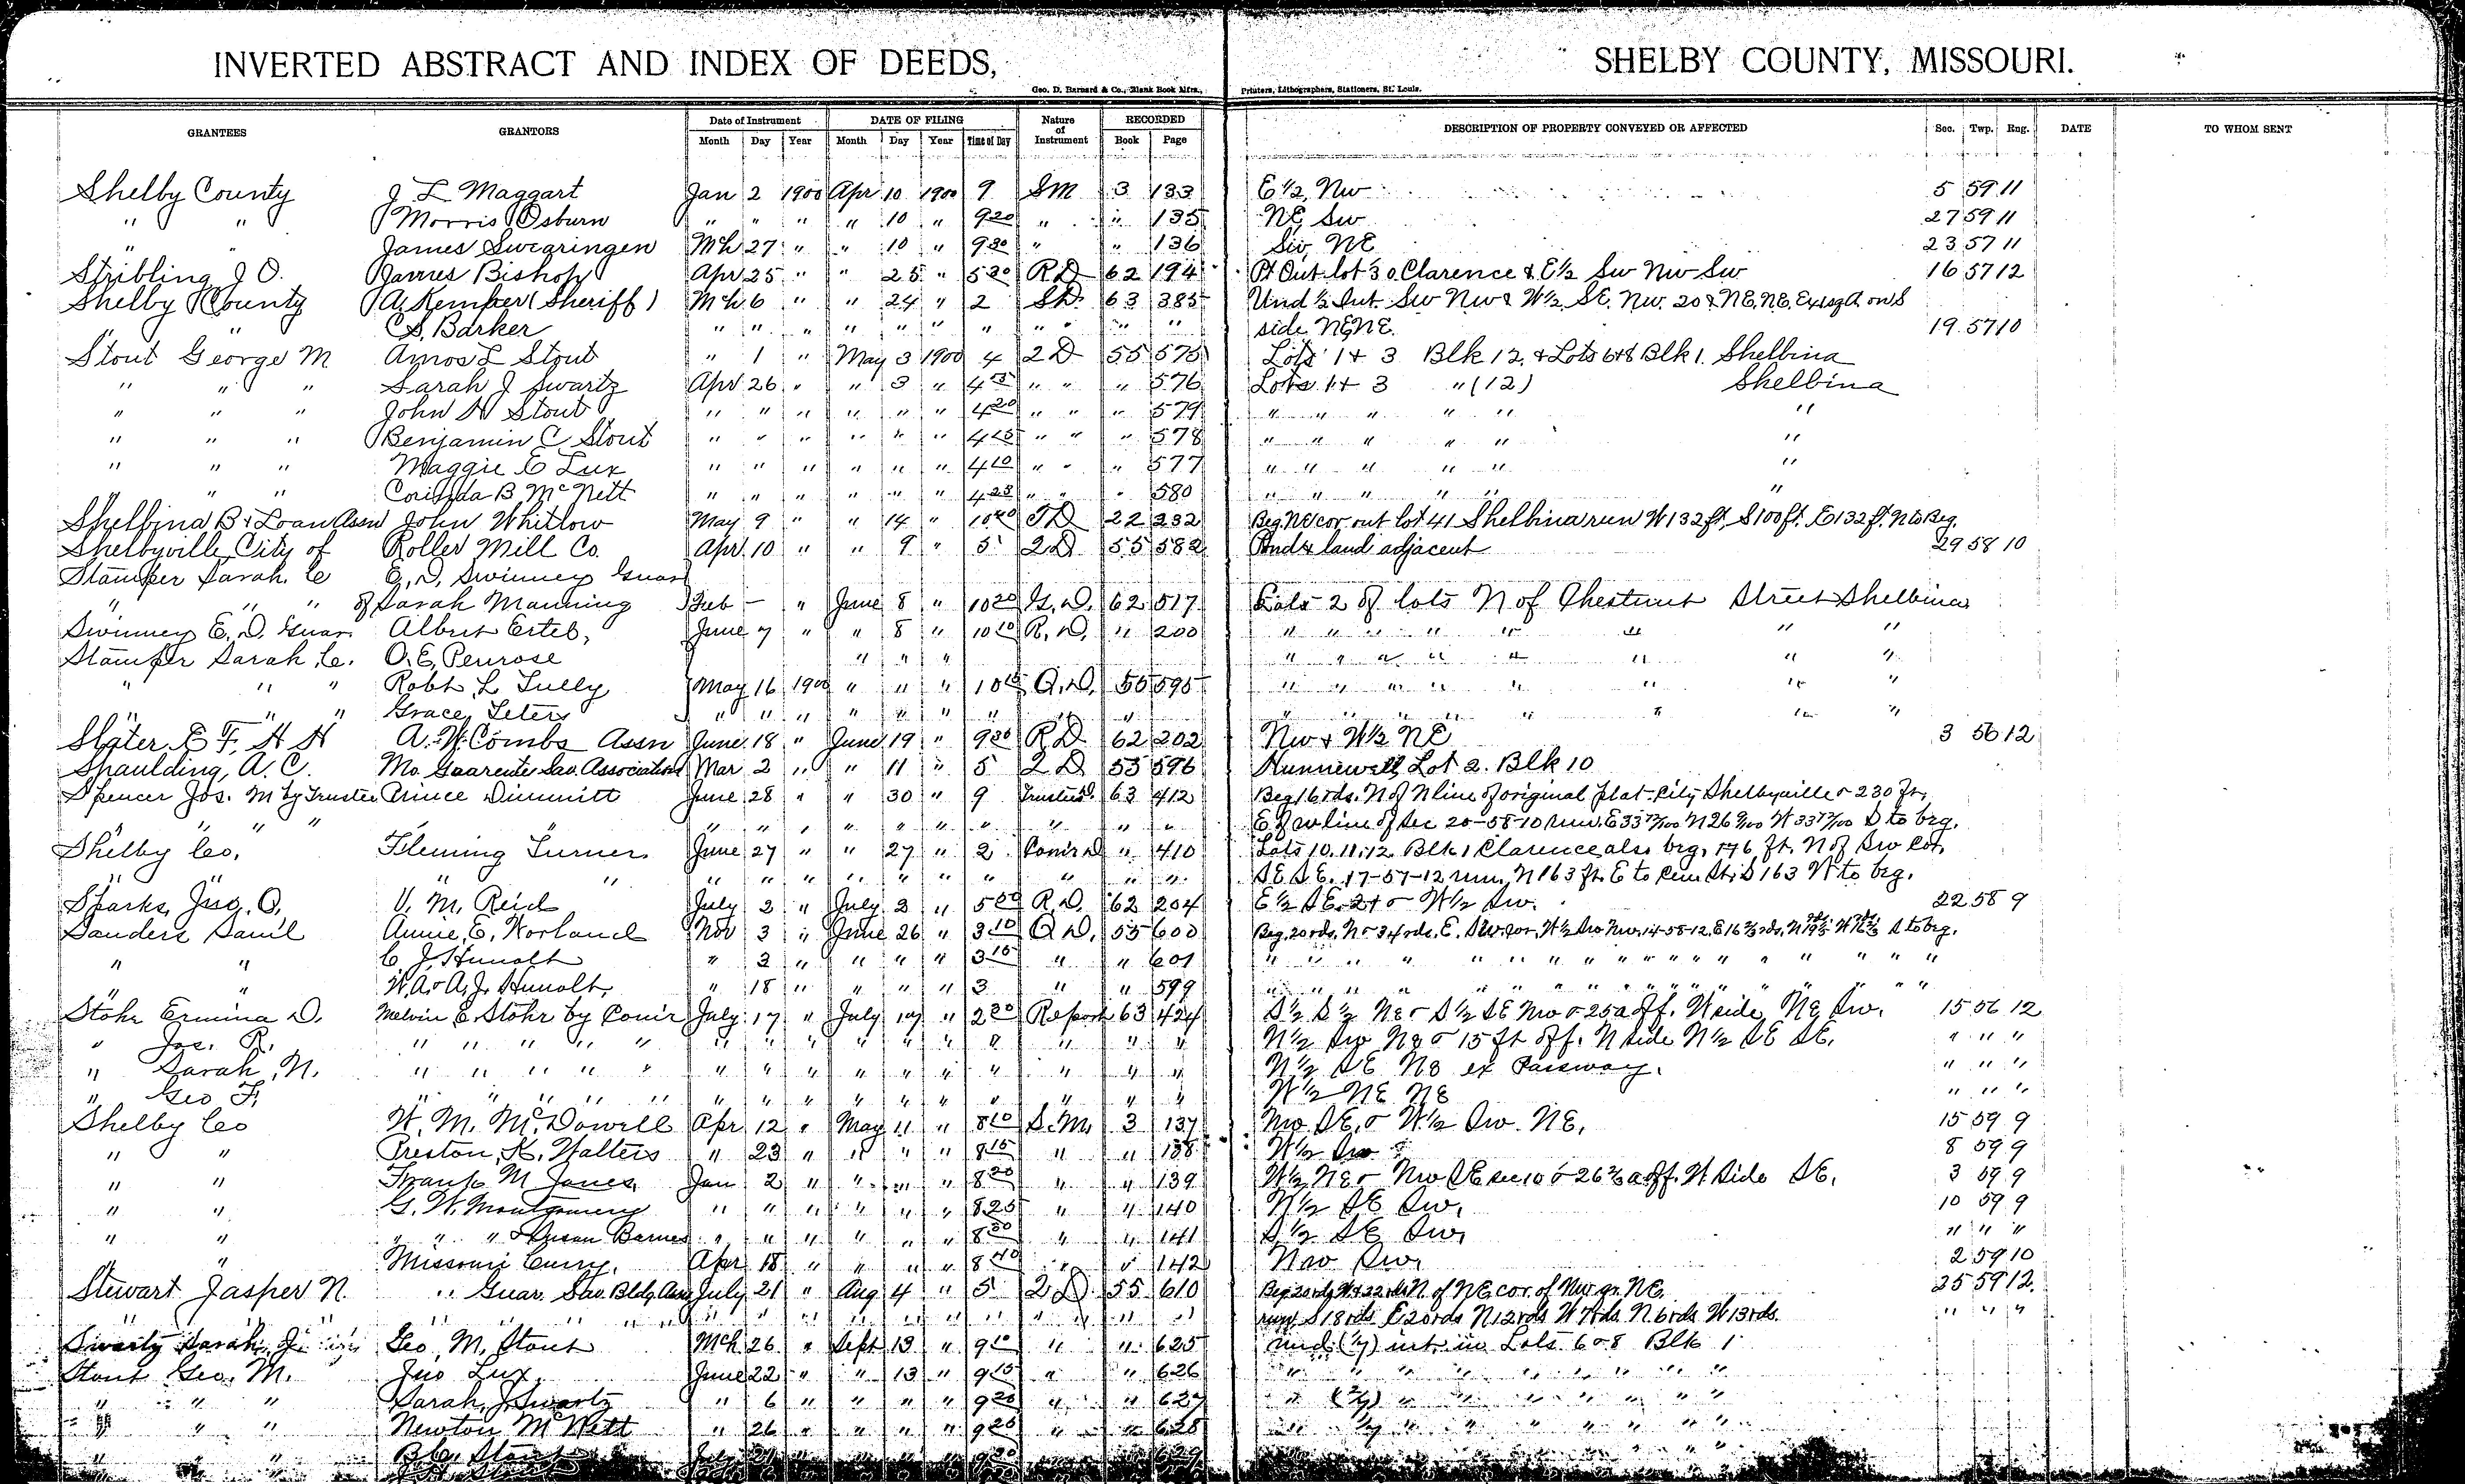 INVERTED ABSTRACT AND INDEX OF DEEDS, SHELBY COUNTY, MISSOURI.
Geo. D. Barnard & Co., Blank Book Mfrs., Printers, Lithographers, Stationers, St. Louis.
GRANTEES GRANTORS Date of Instrument DATE OF FILING Nature of Instrument RECORDED DESCRIPTION OF PROPERTY CONVEYED OR AFFECTED Sec. Twp. Rng. DATE TO WHOM SENT
Month Day Year Month Day Year Time of Day Book Page
Shelby County J L Maggart Jan 2 1900 Apr 10 1900 9 SM 3 133 E 1/2, Nw 5 59 11
" " Morris Osburn " " " " 10 " 9 20 " " 135 NE, Sw 27 59 11
" " James Swearingen Mch 27 " " 10 " 9 30 " " 136 Sw, NE 23 57 11
Stribling J O. James Bishop Apr 25 " " 25 " 5 30 R D 62 194 Pt Out lot 30 Clarence & E 1/2 Sw Nw Sw 16 57 12
Shelby County A. Kemper (Sheriff) Mch 6 " " 24 " 2 Sh. 63 385 Und 1/2 Int. Sw Nw & W 1/2 SE. Nw. 20 & NE, NE, Ex 1 sq A on S
" " C.S. Barker " " " " " " " " " " " side NE, NE. 19 57 10
Stout George M Amos L Stout " 1 " May 3 1900 4 2 D 55 575 Lots 1 + 3 Blk 12, & Lots 6 & 8 Blk 1. Shelbina
" " " Sarah J Swartz Apr 26 " " 3 " 4 5 " " " 576 Lots 1 + 3 " (12) Shelbina
" " " John N Stout " " " " " " 4 20 " " " 579 " " " " " "
" " " Benjamin C Stout " " " " " " 4 15 " " " 578 " " " " " "
" " " Maggie E Lux " " " " " " 4 10 " " " 577 " " " " " "
" " " B McNett " " " " " " 4 25 " " " 580 " " " " " "
Shelbina B & Loan Assn John Whitlow May 9 " " 14 " 10 40 TD 22 232 Beg. NE cor. out lot 41 Shelbina run W 132 ft. S 100 ft. E 132 ft. N to Beg.
Shelbyville, City of Roller Mill Co. Apr. 10 " " 9 " 5 2 D 55 582 Pond & land adjacent 29 58 10
Stamper Sarah. C E. D. Swinney Guar
" " " of Sarah Manning Feb - " June 8 " 10 20 G. D. 62 517 Lots 2 of lots N of Chestnut Street Shelbina
Swinney E. D. Guar. Albert Esteb, June 7 " " 8 " 10 10 R. D. " 200 " " " " " " " "
Stamper Sarah C. O. E. Penrose " " " " " " " " " " "
" " " Robt. L Tully May 16 1900 " " " 10 15 Q. D. 55 595 " " " " " " " "
" " " Grace, Teters " " " " " " " " " " " " " " " " "
Slater E F, H H A. W. Combs Assn June 18 " June 19 " 9 30 R.D 62 202 Nw & W 1/2 NE 3 56 12
Spaulding, A. C. Mo. Guarentee Sav. Association Mar 2 " " 11 " 5 2 D 55 596 Hunnewell Lot 2. Blk 10
Spencer Jos. M by Trustee Prince Dimmitt June 28 " " 30 " 9 Trustee D. 63 412 Beg 16 rds. N of N line of original plat - City Shelbyville & 230 ft,
" " " " " " " " " " " " " " E of w line of Sec 20-58-10 run, E 33 N 26 W 33 S to brg.
Shelby Co. Fleming Turner June 27 " " 27 " 2 Com'r D " 410 Lots 10. 11. 12 Blk 1 Clarence also brg, 176 ft. N of Sw Cor,
" " " " " " " " " " " " " SE SE. 17-57-12 run, N 163 ft. E to S 163 W to brg.
Sparks, Jno. O, V. M. Reid July 2 " July 2 " 5 00 R. D. 62 204 E 1/2 SE. 21 & W 1/2 Sw. 22 58 9
Sanders Saml Annie, E, Worland Nov 3 " June 26 " 3 10 Q D. 55 600 Beg. 20 rds. N & 34 rds. E. Sw. cor, W 1/2 Sw Nw. 14-58-12, E 16 2/3 rds, N S to brg.
" " C J. Hunolt " 3 " " " " 3 15 " " 601 " " " " " " " "
" " W. A. & A. J. Hunolt, " 18 " " " " 3 " " 599 " " " " " " " "
Stohr Ermina D. Melvin E. Stohr by Com'r July 17 " July 17 " 2 30 Report 63 424 S 1/2 S 1/2 NE & S 1/2 SE Nw & 25 a off. W side NE Sw. 15 56 12
" Jos. R. " " " " " " " " " " " " " " " N 1/2 Sw NE & 15 ft off. N side N 1/2 SE SE. " " "
" Sarah, N. " " " " " " " " " " " " " " " N 1/2 SE NE ex Passway. " " "
" Geo F, " " " " " " " " " " " " " " " W 1/2 NE NE " " "
Shelby Co W. M. McDowell Apr 12 " May 11 " 8 10 S. M, 3 137 Nw SE, & W 1/2 Sw. NE, 15 59 9
" " Preston, K. Walters " 23 " " " " 8 15 " " 138 W 1/2 Sw 8 59 9
" " Frank M Jones Jan 2 " " " " 8 20 " " 139 W 1/2 NE & Nw SE sec 10 & 26 a off. W side SE, 3 59 9
" " G. W. Montgomery " " " " " " 8 25 " " 140 N 1/2 SE Sw, 10 59 9
" " " " " & Susan Barnes " " " " " " 8 30 " " 141 S 1/2 SE Sw, " " "
" " Missouri Curry, Apr 18 " " " " 8 40 " " 142 Nw Sw, 2 59 10
Stewart Jasper N. " Guar. Sav. Bldg Assn July 21 " Aug 4 " 5 2 D. 55 610 Beg. 20 rds W & 22 rds N of NE cor. of Nw qr. NE. 25 59 12.
" " " " " " " " " " " " " " run, S 18 rds E 20 rds N 12 rds W 7 rds. N. 6 rds W 13 rds. " " "
Swartz Sarah, J. Geo, M, Stout Mch 26 " Sept 13 " 9 10 " " 625 und (1/7) int. in Lots 6 & 8 Blk 1
Stout Geo. M. Jno Lux June 22 " " 13 " 9 15 " " 626 " " " " " " "
" " " Sarah, J Swartz " 6 " " " " 9 20 " " 627 " (2/7) " " " " " "
" " " Newton McNett " 26 " " " " 9 25 " " 628 " 1/7 " " " " " "
" " " Stout July " " " " 9 30 " " 629 " " "